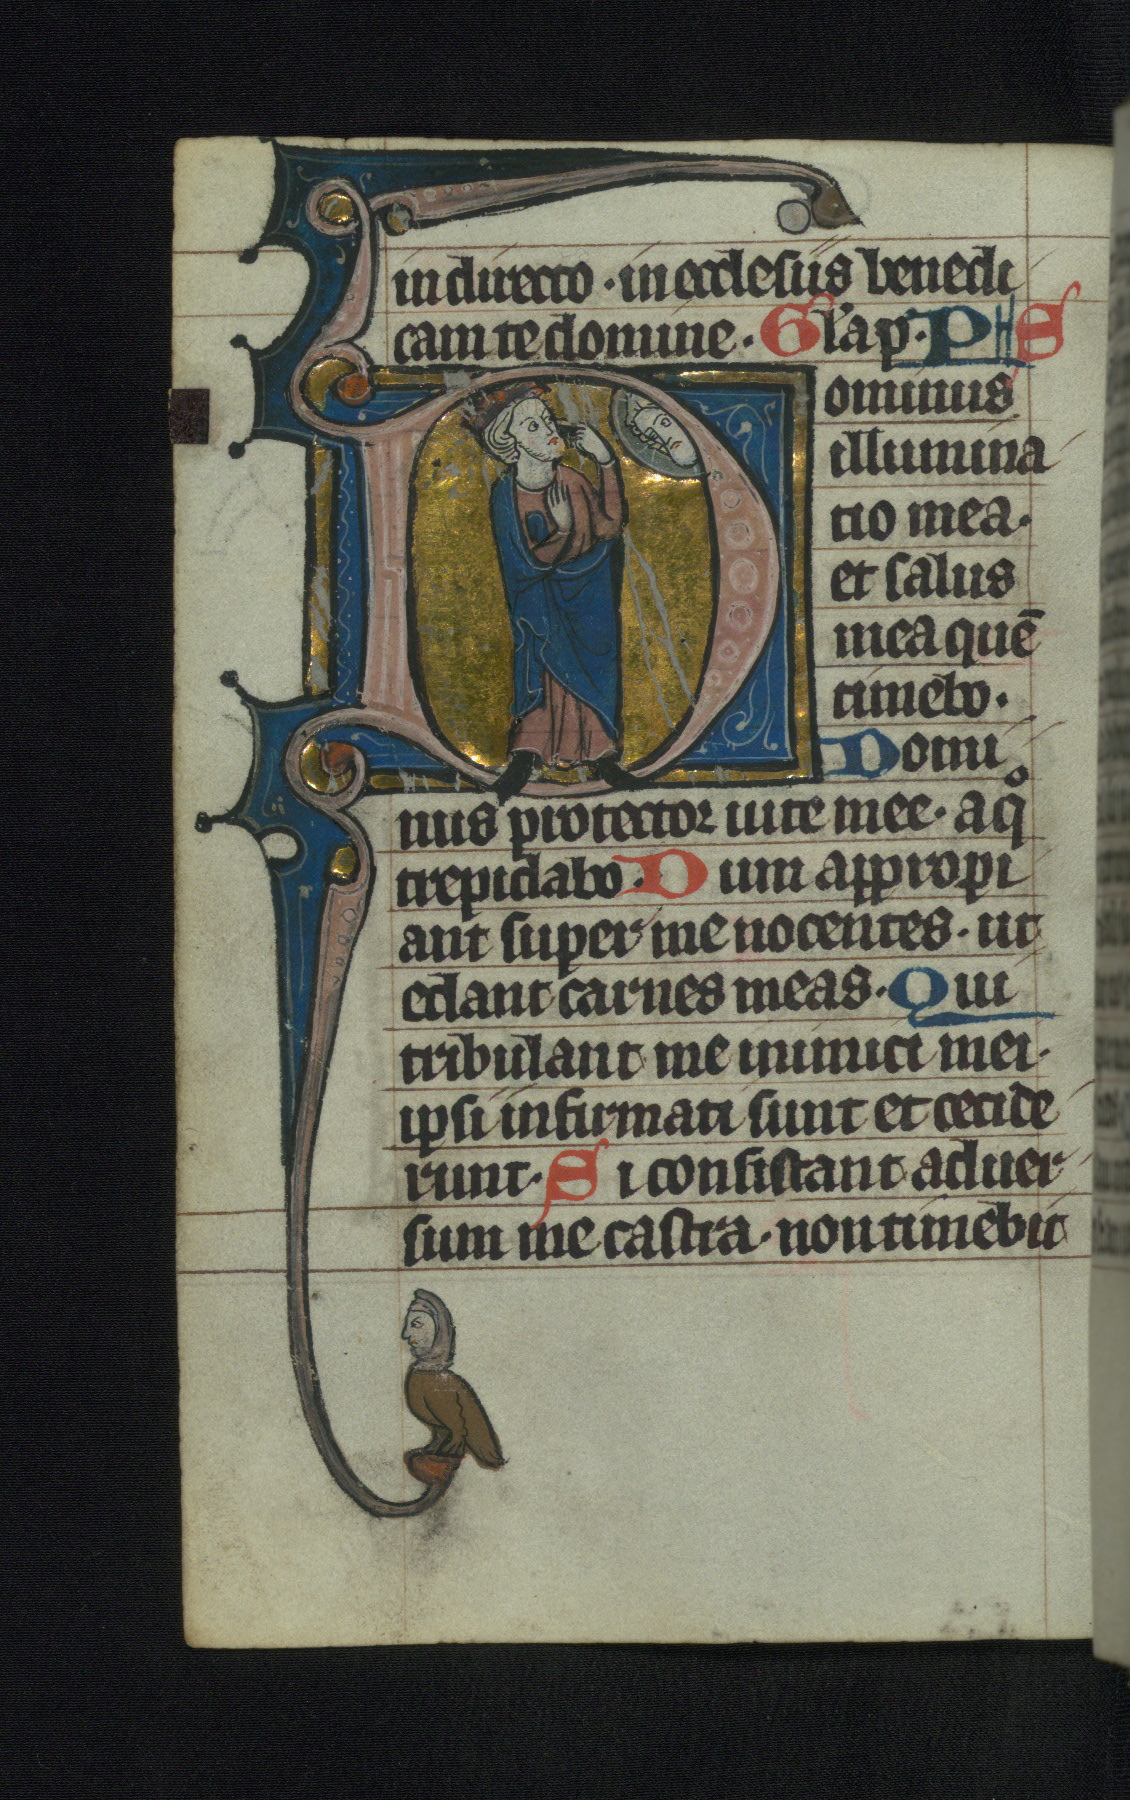 in directo · in ecclesiis benedi
cam te domine · Gl'a p · PS
Dominus
illumina
tio mea ·
et salus
mea quē
timebo ·
Domi
nus protector uite mee · a qͦ
trepidabo · Dum appropi
ant super me nocentes · ut
edant carnes meas · Qui
tribulant me inimici mei ·
ipsi infirmati sunt et cecide
runt · Si consistant aduer
sum me castra · non timebit